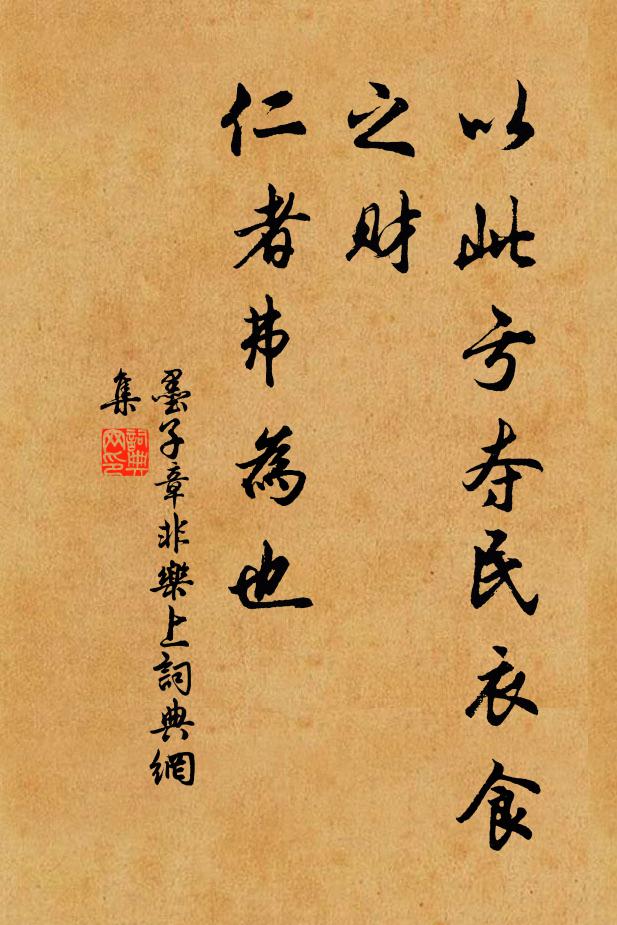 以此亏夺民衣食
之财
仁者弗為也
墨子章非樂上詞典網
集
詞典
网印